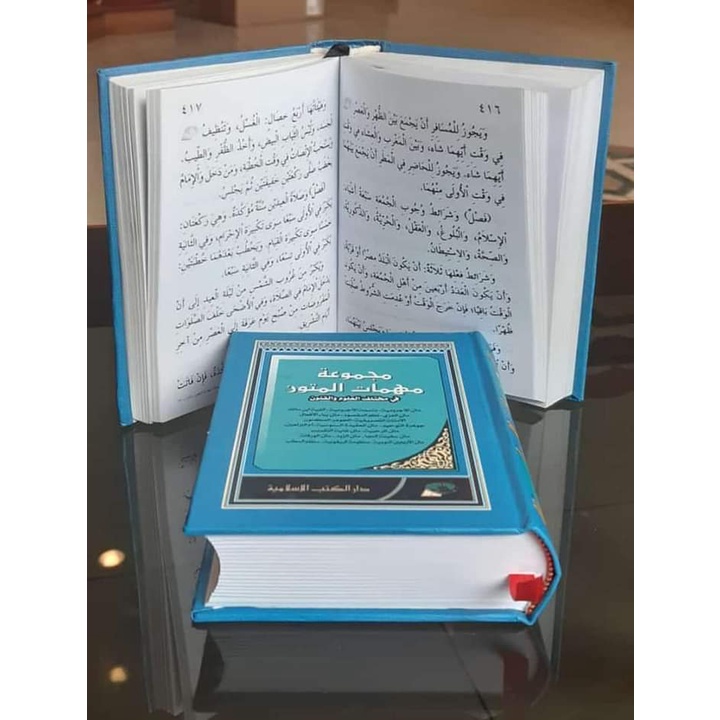 ٤١٦
وَيَجُوزُ لِلْمُسَافِرِ أَنْ يَجْمَعَ بَيْنَ الظُّهْرِ وَالْعَصْرِ
فِي وَقْتِ أَيِّهِمَا شَاءَ، وَبَيْنَ الْمَغْرِبِ وَالْعِشَاءِ فِي وَقْتِ
أَيِّهِمَا شَاءَ. وَيَجُوزُ لِلْحَاضِرِ فِي الْمَطَرِ أَنْ يَجْمَعَ بَيْنَهُمَا
فِي وَقْتِ الْأُولَى مِنْهُمَا.
(فَصْلٌ) وَشَرَائِطُ وُجُوبِ الْجُمُعَةِ سَبْعَةُ أَشْيَاءَ
الْإِسْلَامُ، وَالْبُلُوغُ، وَالْعَقْلُ، وَالْحُرِّيَّةُ، وَالذُّكُورِيَّةُ،
وَالصِّحَّةُ، وَالِاسْتِيطَانُ.
وَشَرَائِطُ فِعْلِهَا ثَلَاثَةٌ: أَنْ يَكُونَ الْبَلَدُ مِصْرًا أَوْ قَرْيَةً،
وَأَنْ يَكُونَ الْعَدَدُ أَرْبَعِينَ مِنْ أَهْلِ الْجُمُعَةِ، وَأَنْ يَكُونَ
الْوَقْتُ بَاقِيًا؛ فَإِنْ خَرَجَ الْوَقْتُ أَوْ عُدِمَتِ الشُّرُوطُ صُلِّيَتْ
ظُهْرًا.
٤١٧
وَهَيْئَاتُهَا أَرْبَعُ خِصَالٍ: الْغُسْلُ، وَتَنْظِيفُ
الْجَسَدِ، وَلُبْسُ الثِّيَابِ الْبِيضِ، وَأَخْذُ الظُّفْرِ وَالطِّيبُ.
وَيُسْتَحَبُّ الْإِنْصَاتُ فِي وَقْتِ الْخُطْبَةِ، وَمَنْ دَخَلَ وَالْإِمَامُ
يَخْطُبُ صَلَّى رَكْعَتَيْنِ خَفِيفَتَيْنِ ثُمَّ يَجْلِسُ.
(فَصْلٌ) وَصَلَاةُ الْعِيدَيْنِ سُنَّةٌ مُؤَكَّدَةٌ. وَهِيَ رَكْعَتَانِ،
يُكَبِّرُ فِي الْأُولَى سَبْعًا سِوَى تَكْبِيرَةِ الْإِحْرَامِ، وَفِي الثَّانِيَةِ
خَمْسًا سِوَى تَكْبِيرَةِ الْقِيَامِ. وَيَخْطُبُ بَعْدَهُمَا خُطْبَتَيْنِ
يُكَبِّرُ فِي الْأُولَى تِسْعًا، وَفِي الثَّانِيَةِ سَبْعًا.
وَيُكَبِّرُ مِنْ غُرُوبِ الشَّمْسِ مِنْ لَيْلَةِ الْعِيدِ إِلَى أَنْ
يَدْخُلَ الْإِمَامُ فِي الصَّلَاةِ، وَفِي الْأَضْحَى خَلْفَ الصَّلَوَاتِ
الْمَفْرُوضَاتِ مِنْ صُبْحِ يَوْمِ عَرَفَةَ إِلَى الْعَصْرِ مِنْ آخِرِ
أَيَّامِ التَّشْرِيقِ.
مجموعة
مهمات المتون
في مختلف العلوم والفنون
دار الكتب الإسلامية